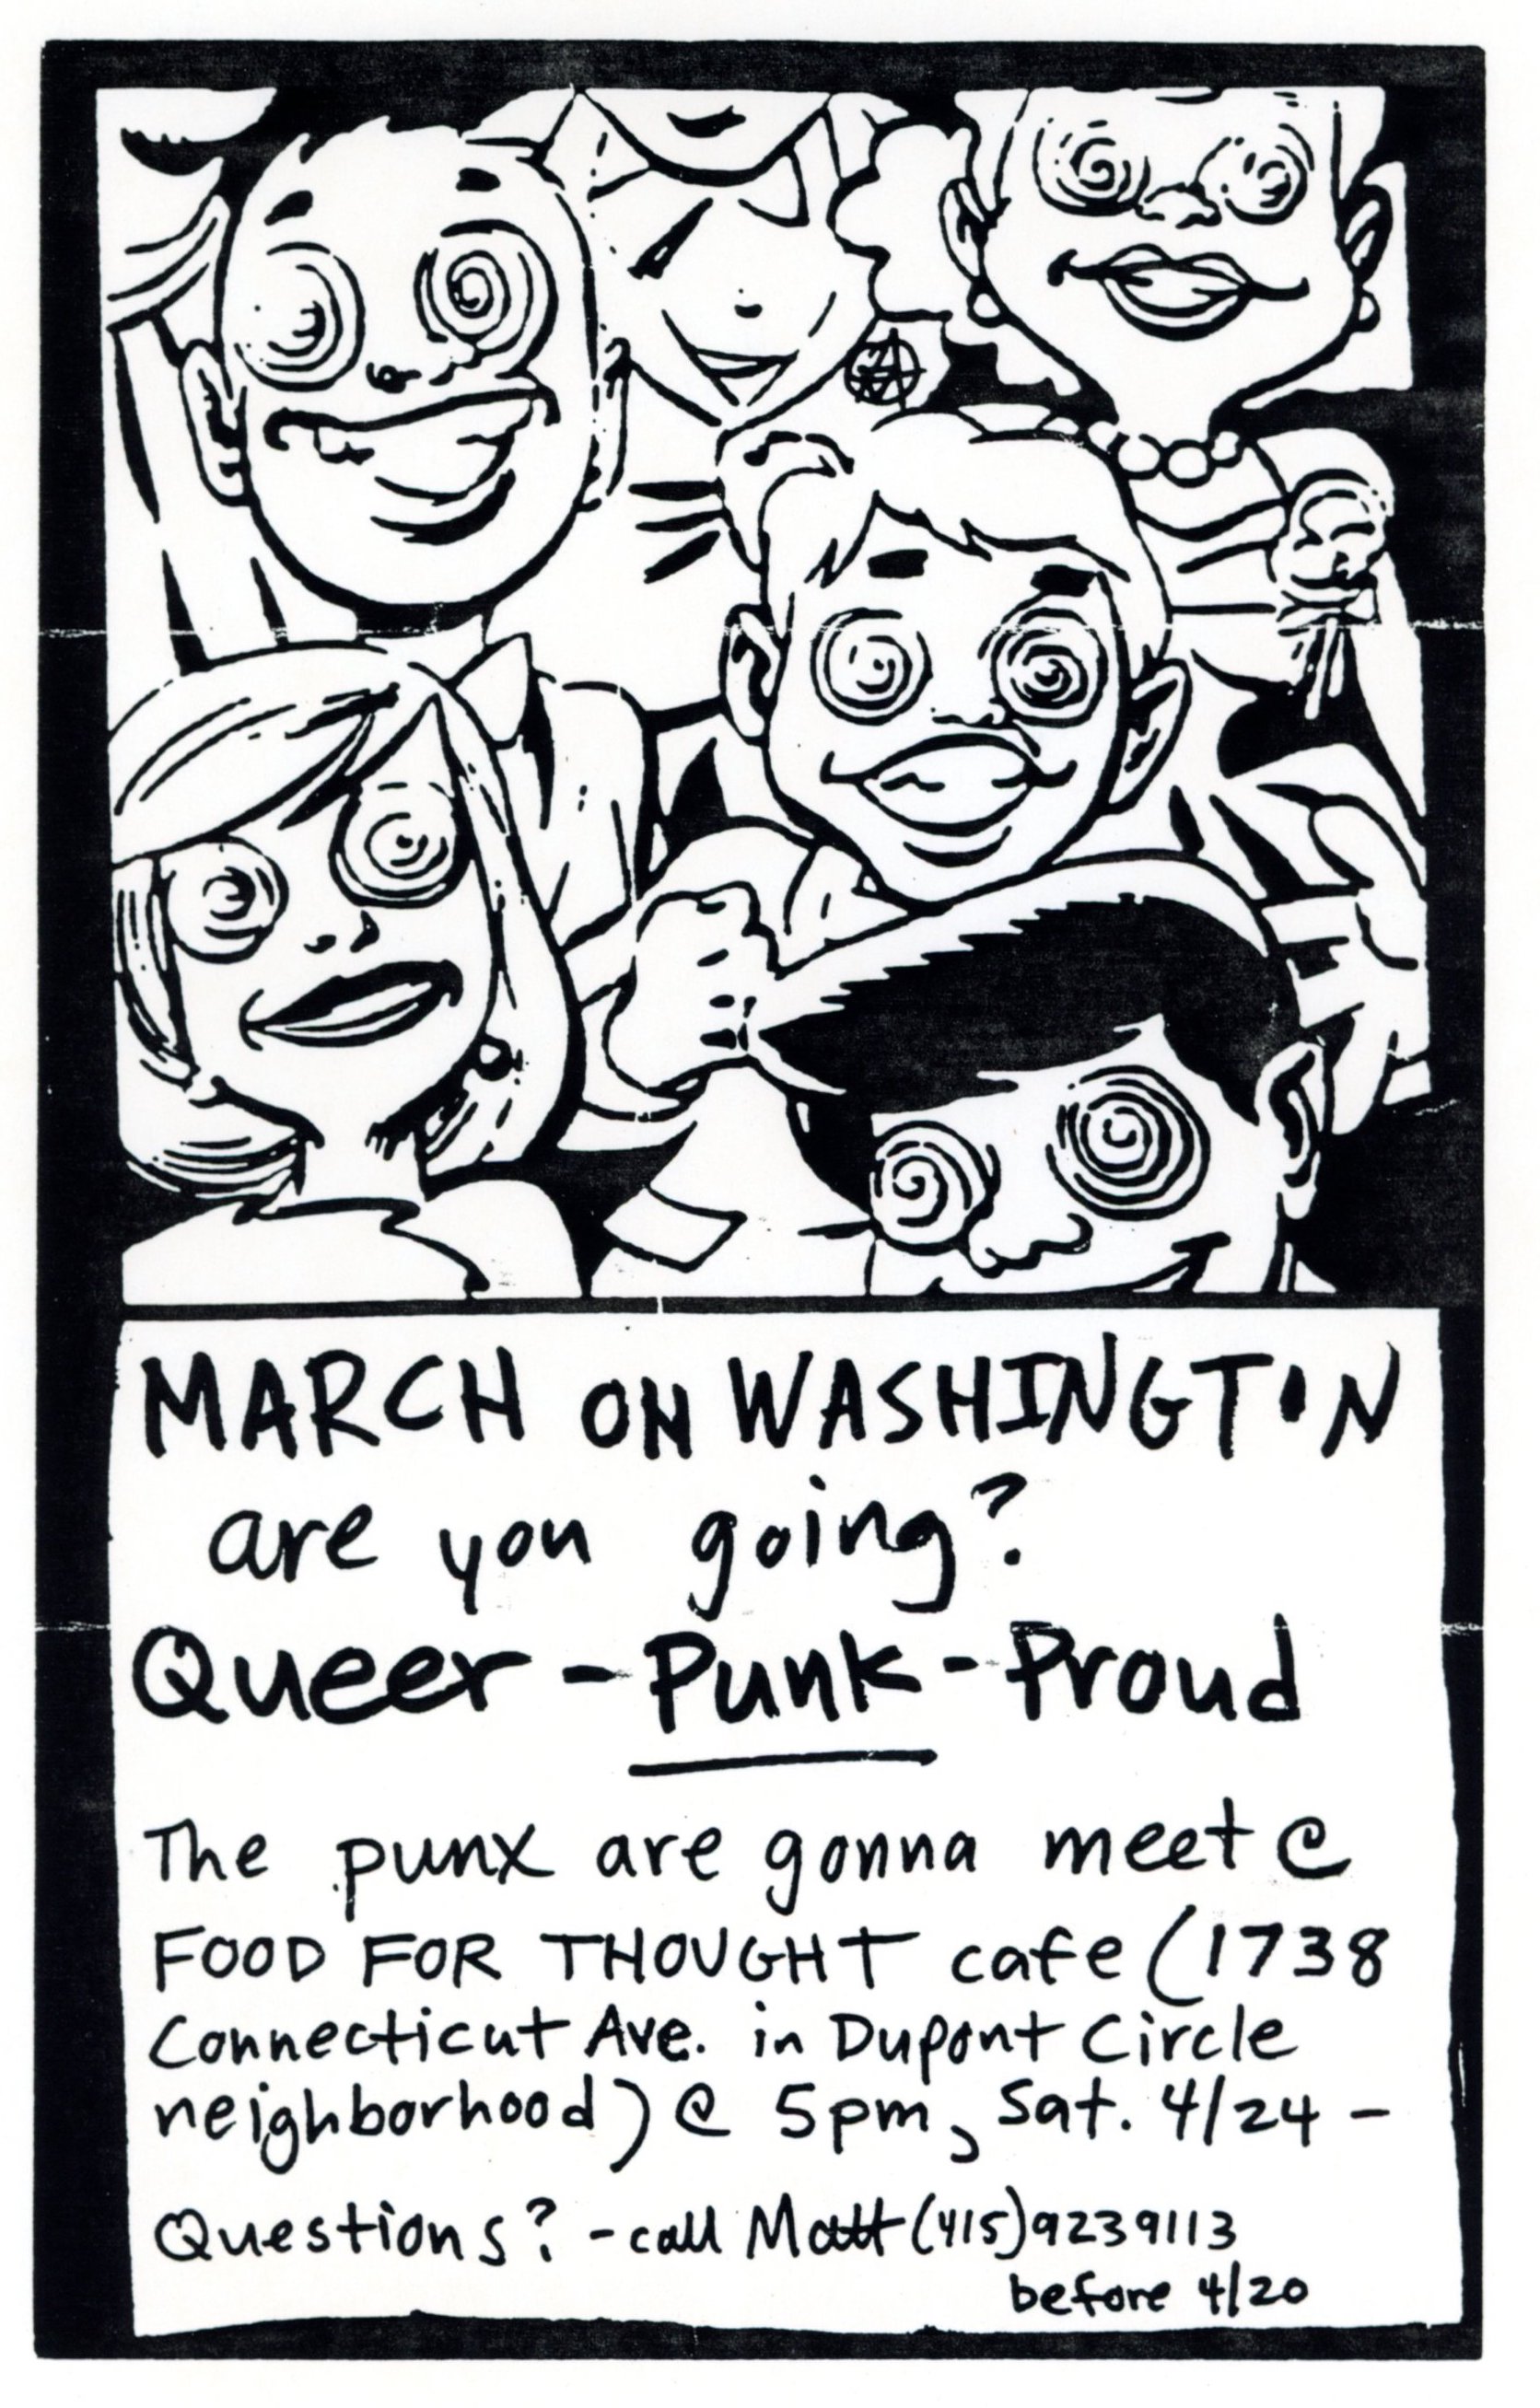 MARCH ON WASHINGTON
are you going?
Queer - Punk - Proud
The punx are gonna meet @
FOOD FOR THOUGHT cafe (1738
Connecticut Ave. in Dupont Circle
neighborhood) @ 5pm, Sat. 4/24 -
Questions? - call Matt (415) 9239113
before 4/20